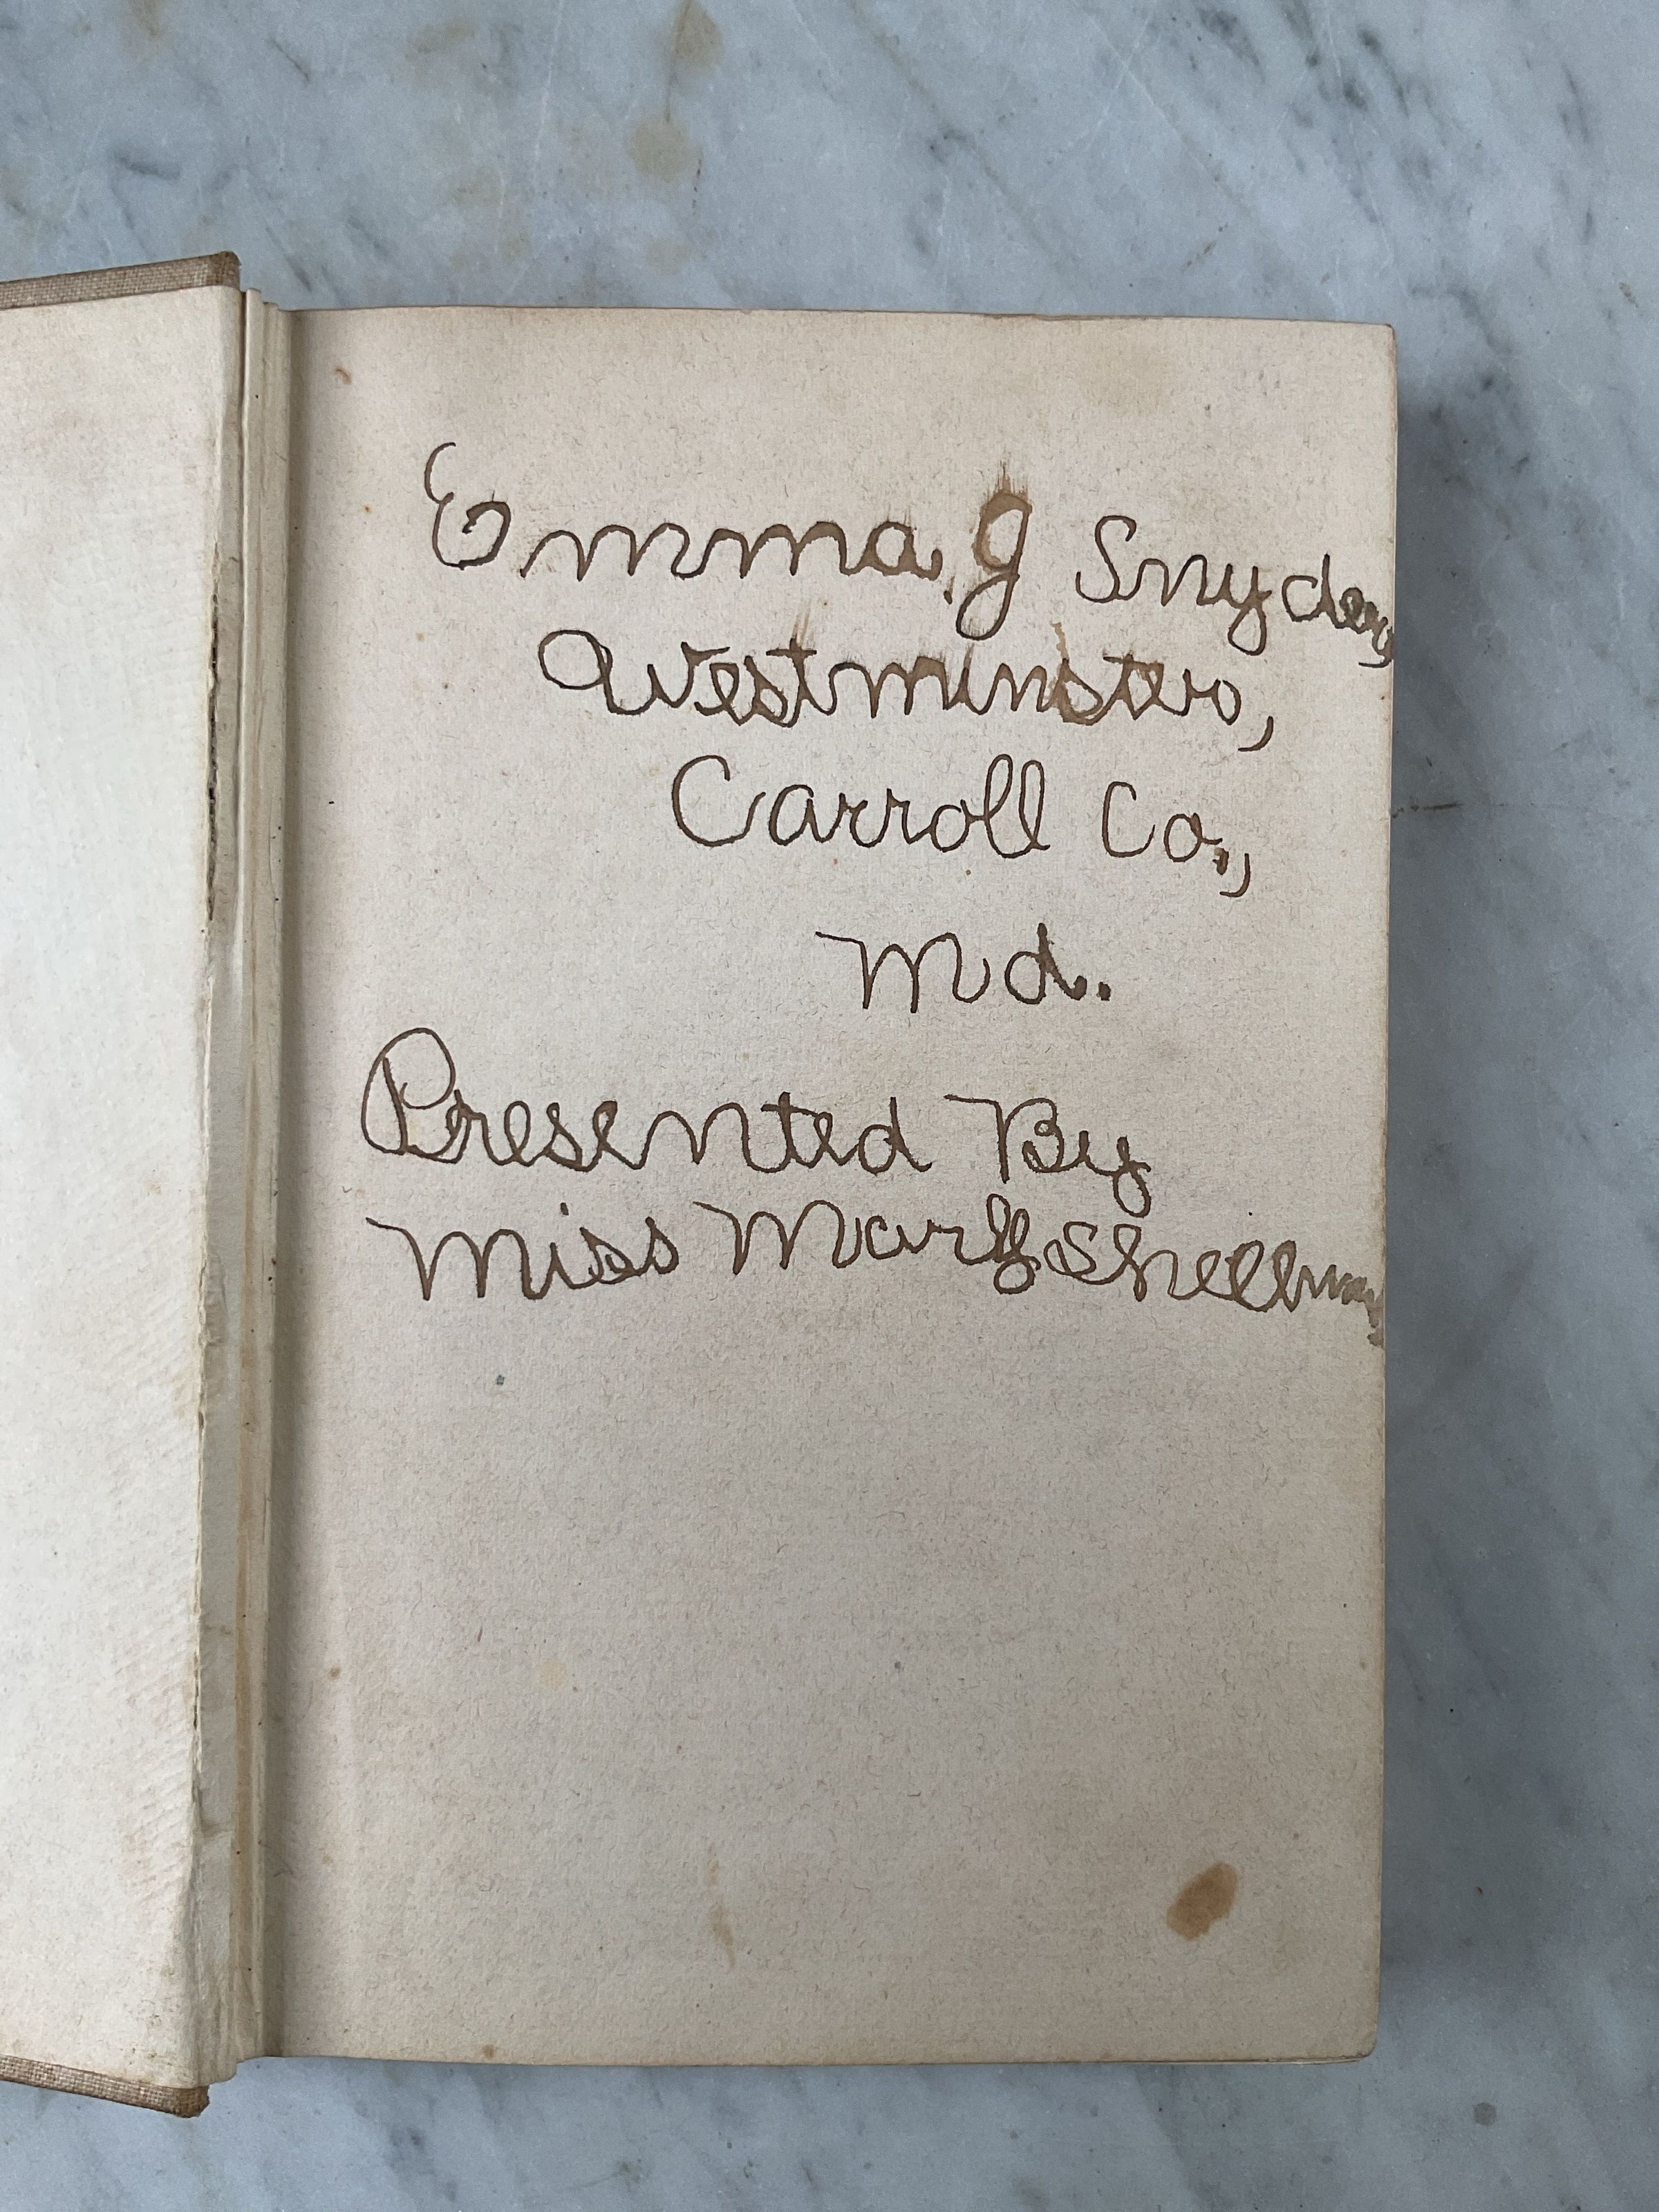 Emma, J Snyder,
Westminster,
Carroll Co.,
Md.
Presented By
Miss Mary Shellman,